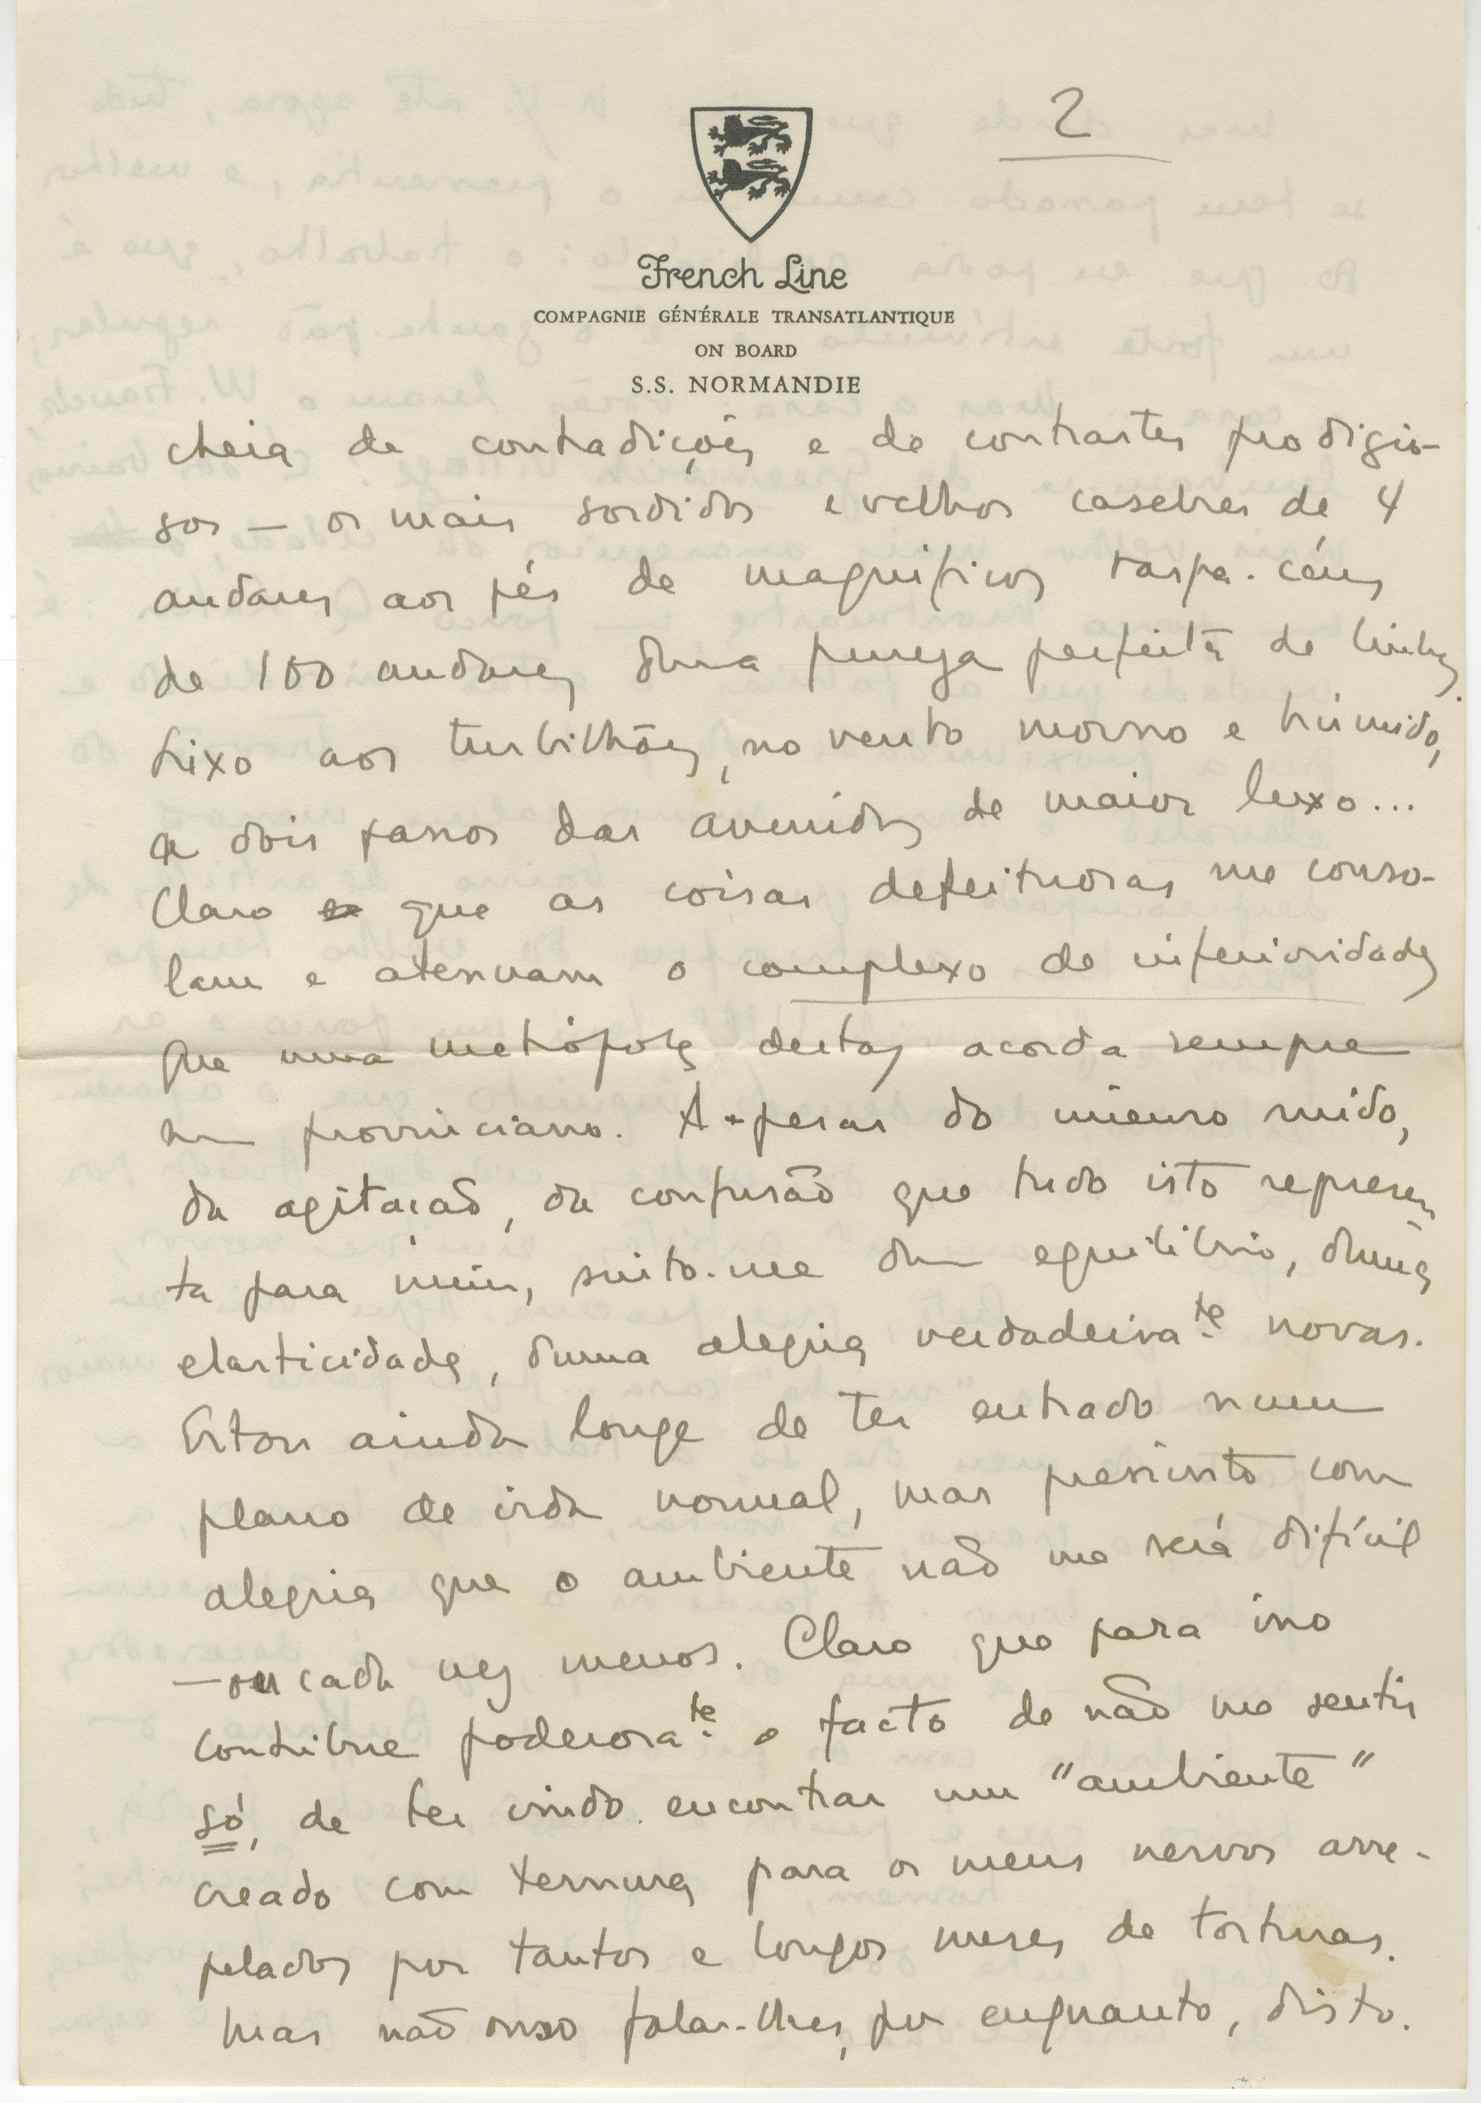 2
French Line
COMPAGNIE GÉNÉRALE TRANSATLANTIQUE
ON BOARD
S.S. NORMANDIE
cheia de contradições e de contrastes prodigio-
sos — os mais sordidos e velhos casebres de 4
andares aos pés de magnificos raspa-céus
de 100 andares duma pureza perfeita de linhas,
lixo aos turbilhões, no vento morno e húmido,
a dois passos das avenidas de maior luxo...
Claro que as coisas defeituosas me conso-
lam e atenuam o complexo de inferioridade
que uma metrópole destas acorda sempre
num provinciano. A-pesar do imenso ruido,
da agitação, da confusão que tudo isto represen
ta para mim, sinto-me dum equilibrio, duma
elasticidade, duma alegria verdadeira.te novas.
Estou ainda longe de ter entrado num
plano de vida normal, mas presinto com
alegria que o ambiente não me será difícil
— ou cada vez menos. Claro que para isso
contribue poderosa.te o facto de não me sentir
só, de ter vindo encontrar um "ambiente"
creado com ternura para os meus nervos arre-
pelados por tantos e longos meses de torturas.
Mas não ouso falar-lhes, por enquanto, disto.